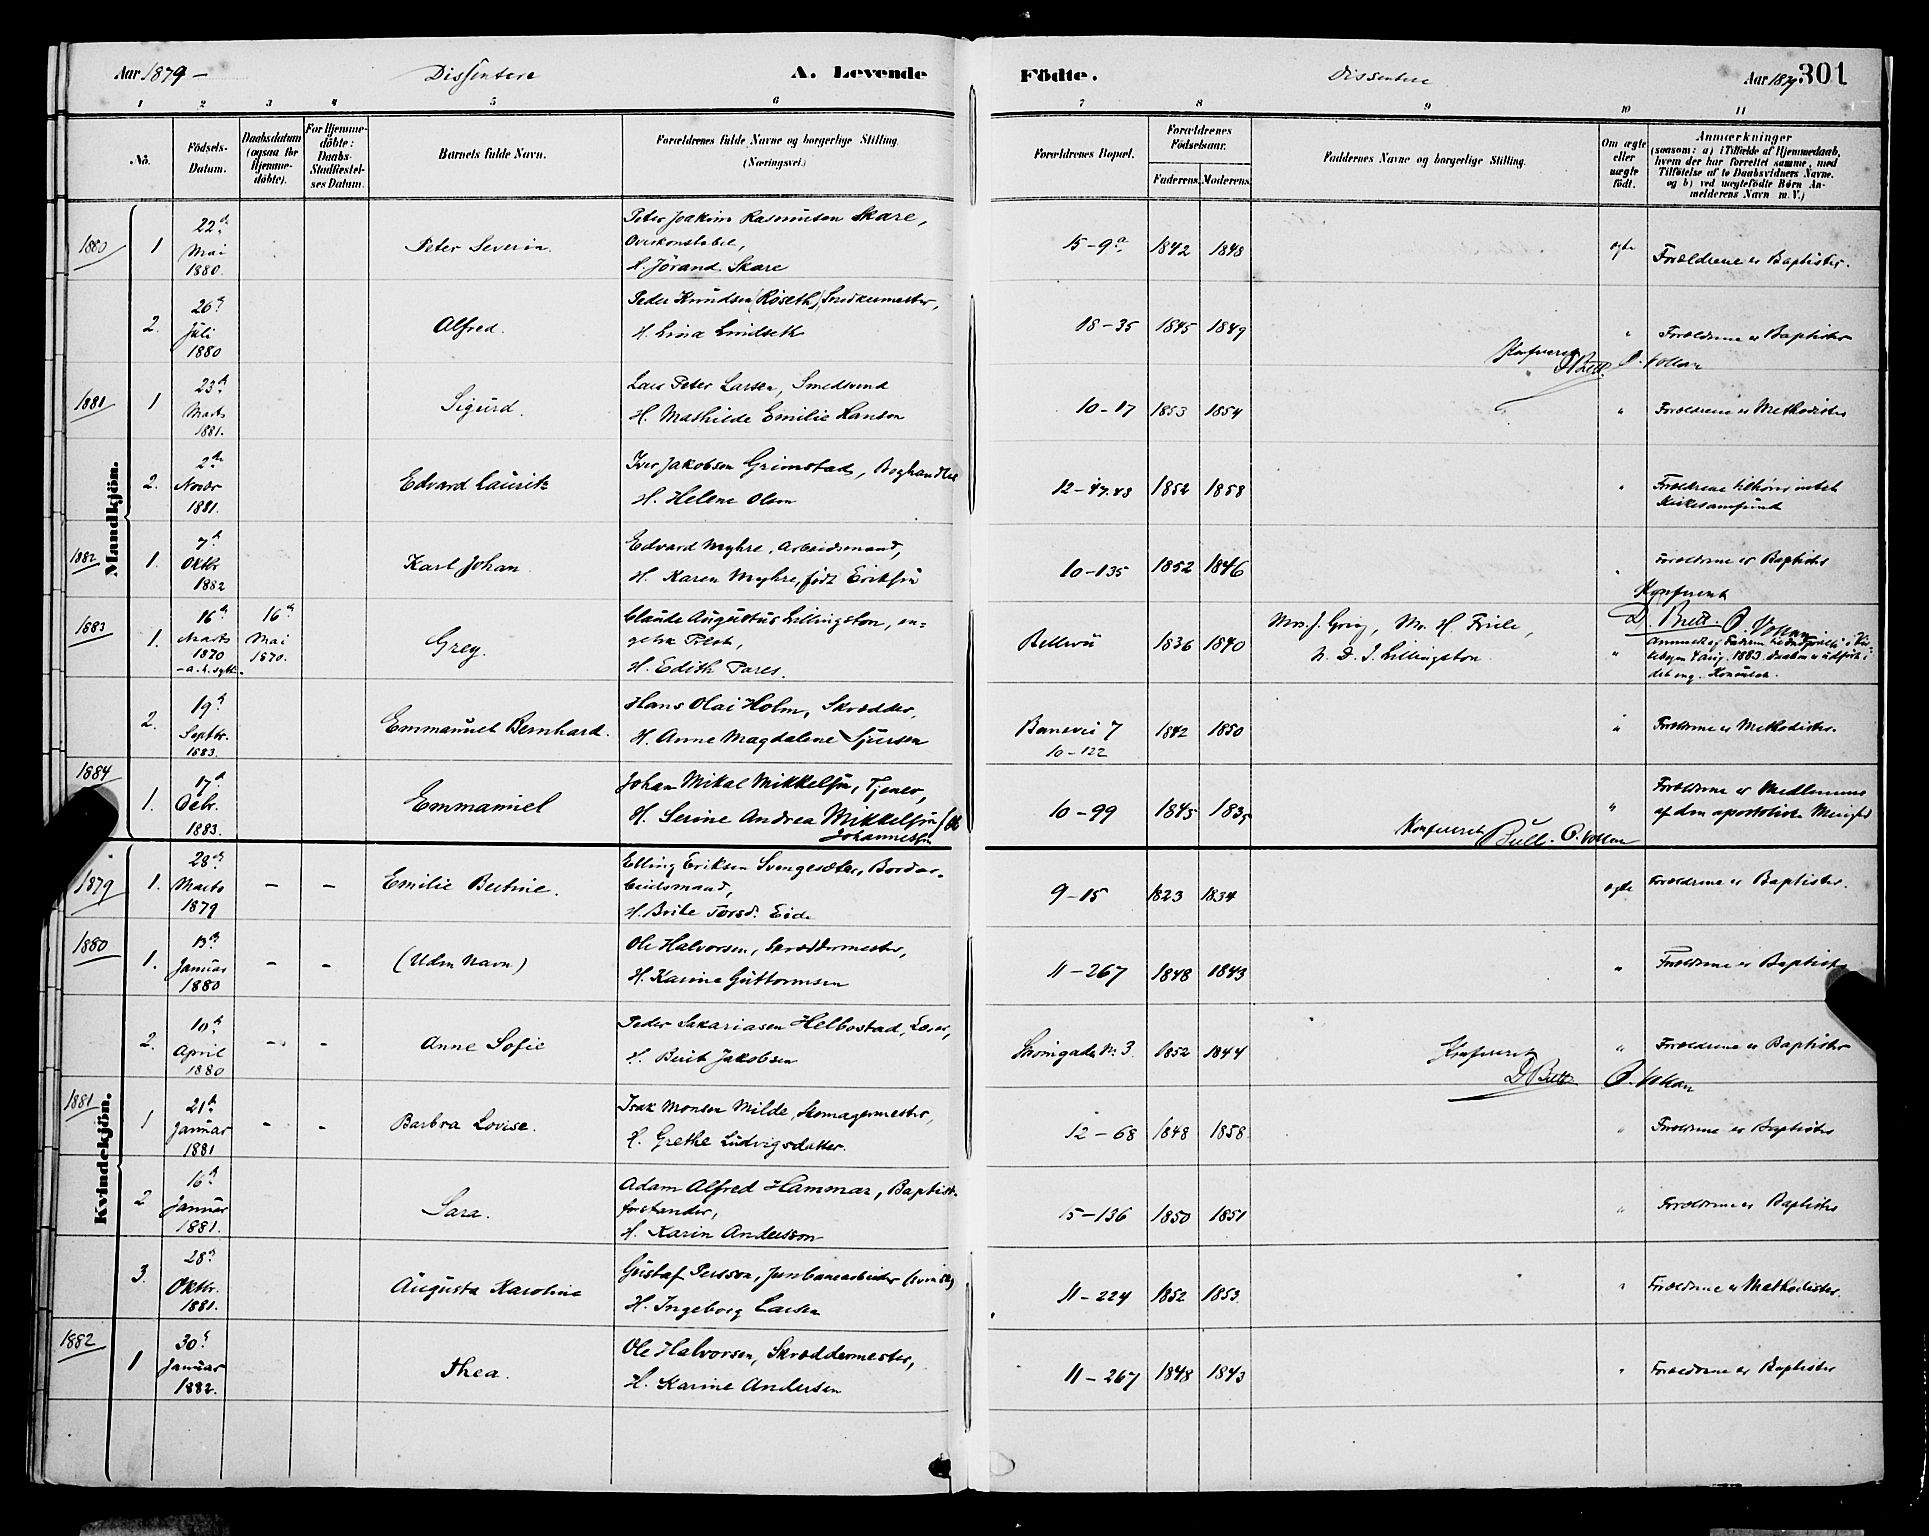 Aar 1879 – Dissentere A. Levende Födte. Dissentere Aar 1879 301
1 2 3 4 5 6 7 8 9 10 11
No.
Födsels-Datum.
Daabsdatum (ogsaa for Hjemme-döbte).
For Hjemme-döbte: Daabs-Stadfæstel-ses Datum.
Barnets fulde Navn.
Forældrenes fulde Navne og borgerlige Stilling (Næringsvei.)
Forældrenes Bopæl.
Forældrenes Födselsaar.
Faderens. Moderens.
Faddernes Navne og borgerlige Stilling.
Om ægte eller uægte födt.
Anmærkninger
(saasom: a) i Tilfælde af Hjemmedaab,
hvem der har forrettet samme, med
Tilföielse af to Daabsvidners Navne.
og b) ved uægtefödte Börn An-
melderens Navn m. V.)
Mandkjön.
1880 1 22de Mai 1880. Peter Severin. Peter Joakim Rasmussen Skare,
Overkonstabel,
H. Jörand Skare 15-9a 1842 1848 ægte Forældrene er Baptister.
2. 26de Juli 1880 Alfred. Peder Knudsen (Röseth) Snedkermester,
H. Lina Lindseth 18-35 1845 1849 " Forældrene er Baptister
Konfereret D Bull. O. Vollan
1881 1 23de Marts 1881. Sigurd. Lars Peter Larsen, Smedsvend
H. Mathilde Emilie Hanson 10-17 1853 1854 " Forældrene er Methodister
2. 2den Novbr 1881. Edvard Lauritz Iver Jakobsen Grimstad, Boghandler
H. Helene Olsen 12-47.48 1852 1858 " Forældrene tilhörer intet
Kirkesamfund
1882 1. 7de Oktbr 1882 Karl Johan. Edvard Myhre, Arbeidsmand,
H. Karen Myhre, födt Eriksen 10-135 1852 1846 " Forældrene er Baptister
Konfereret
D. Bull. O. Vollan
1883 1. 16de Marts 1870 16de Mai 1870. Grey. Claude Augustus Lillingston, en-
gelsk Prest,
H. Edith Pares. Bellevü 1836 1840 Mrs. J. Grieg, Mr. H. Friele,
" 4 Aug. 1883.
2. 19de Septbr. 1883. Emmanuel Bernhard. Hans Olai Holm, Skrædder,
H. Anne Magdalene Sjursen Banevei 7
10-122 1842 1850 " Forældrene er Methodister.
1884 1. 17de 1883. Emmanuel Johan Mikal Mikkelsen, Tjener,
H. Serine Andrea Mikkelsen
Johannessen 10-99 1845 1835 " Forældrene er Medlemmer
af den apostoliske Menighed
Konfereret Bull. O. Vollan
Kvindekjön.
1879 1. 28de Marts 1879 – – Emilie Bertine. Elling Eriksen Svengesæter, Bordar-
beidsmand,
H. Brite Torsd. Eide 9-15 1823 1834 ægte Forældrene er Baptister.
1880 1. 13de Januar 1880 – – (Uden Navn) Ole Halvorsen, Skræddermester,
H. Karine Guttormsen 11-267 1848 1843 " Forældrene er Baptister
2. 10de April 1880 – – Anne Sofie Peder Sakariasen Helbostad, Lærer,
H. Berit Jakobsen N: 3. 1852 1844 " Forældrene er Baptister
Konfereret D Bull O. Vollan
1881 1 21de Januar 1881 – – Barbra Lovise. Isak Monsen Milde, Skomagermester,
H. Grethe Ludvigsdatter. 12-68 1848 1858 " Forældrene er Baptister
2 16de Januar 1881. Sara. Adam Alfred Hammar, Baptist-
forstander,
H. Karin Andersson 15-136 1850 1851 " Forældrene er Baptister
3. 28de Oktbr. 1881. Augusta Karoline Gustaf Persson, Jernbanearbeider (svensk)
H. Ingeborg Larsen 11-224 1852 1853 " Forældrene er Methodister.
1882 1 30de Januar 1882. Thea. Ole Halvorsen, Skræddermester,
H. Karine Andersen 11-267 1848 1843 " Forældrene er Baptister